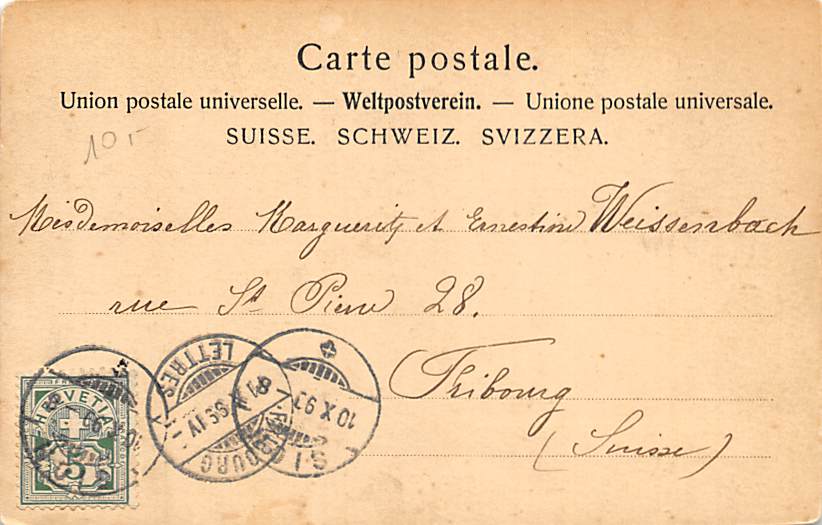 Carte postale.
Union postale universelle. — Weltpostverein. — Unione postale universale.
SUISSE. SCHWEIZ. SVIZZERA.
10.-
Mesdemoiselles Marguerite et Ernestine Weissenbach
rue St Pierre 28.
Fribourg
(Suisse)
LETTRES
FRIBOURG
10 X 9
HELVETIA
5